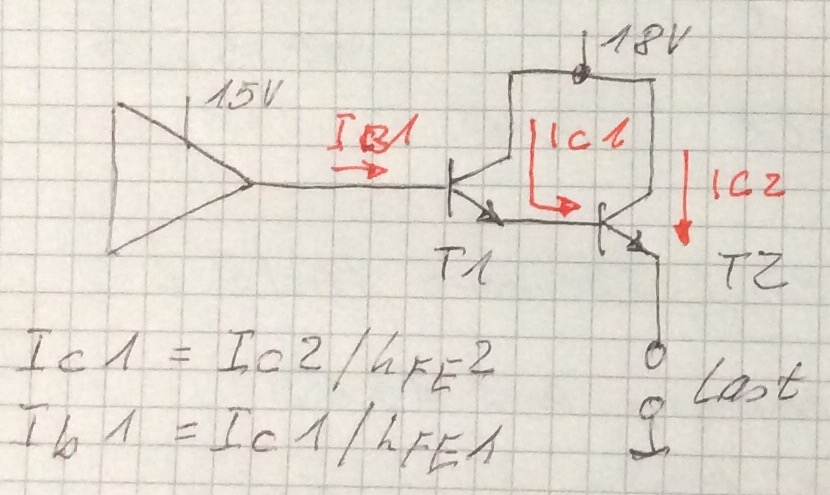 18V
15V
IB1
Ic1
Ic2
T1
T2
Ic1 = Ic2/hFE2
Last
Ib1 = Ic1/hFE1